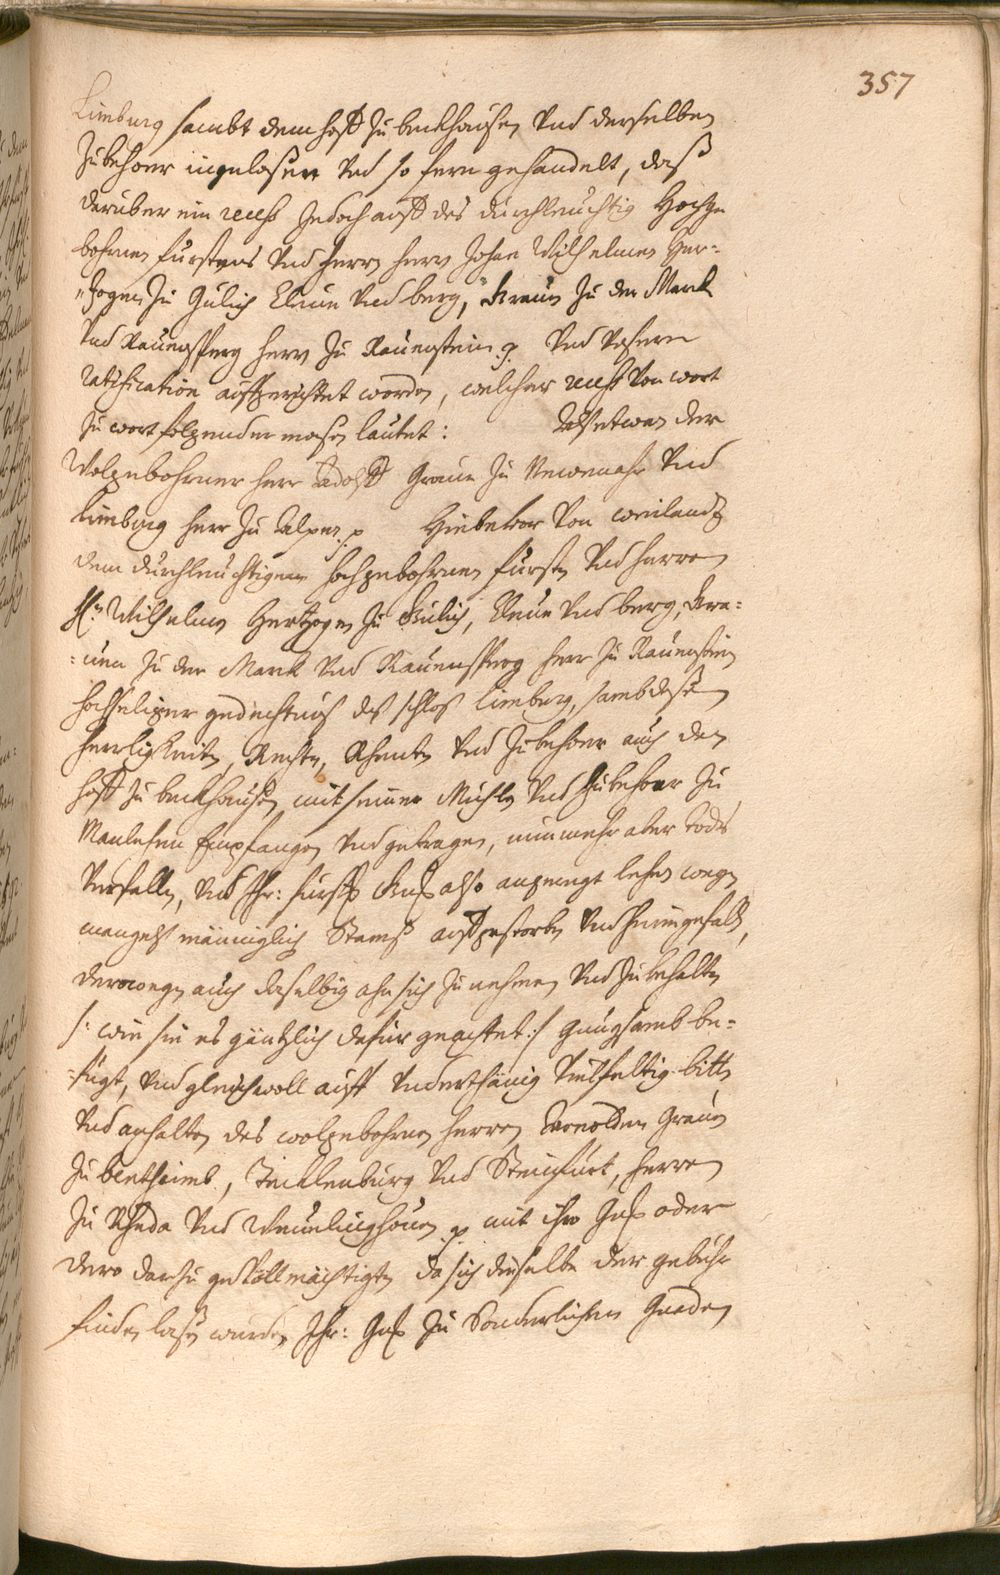 357
Limburg sambt dem hoff zu berckhausen vnd derselben
Zubehoer ingelaßen vnd so fern gehandelt, daß
darüber ein recess Jedoch auff des durchleuchtig Hochge
bohrnen fürstens vnd herrn herrn Johan Wilhelmen Her¬
tzogen zu Gülich Cleue vnd berg, Grauen zu der Marck
vnd Rauensperg herrn zu Rauenstein p. vnd vnsern
ratification auffgerichtet worden, welcher recess von wort
zu wort folgender maßen lautet: Alß etwan der
Wolgebohrner herr Adolff Graue zu Newenahr vnd
Limburg herr zu Alpen p. hiebeuor von weilandt
dem durchleuchtigen hochgebohrnen fürsten vnd herren
Hn Wilhelmen Hertzogen zu Gülich, Cleue vnd berg, Gra=
=uen zu der Marck vnd Rauensperg herr zu Rauenstein
hochseliger gedechtnus daß schloß Limburg, sambt deßen
herrligkeiten, Rechten, Rhenten vnd Zubehoer auch den
hoff zu berckhausen mit seiner Mühlen vnd Zubehoer zu
Manlehen Empfangen vnd getragen, nunmehr aber tods
verfallen, vnd Ihr: fürstl Gn also angeregt lehen wegen
mangelß männiglich Stamß auffgestorben vnd heimgefallen,
derowegen auch daselbig ahn sich zu nehmen vnd zu behalten
/: wie sie es gäntzlich dafür geachtet :/ gnugsamb be=
=fügt, vnd gleichwoll auff vnderthänig vielfeltig bitten
vnd anhalten des wolgebohrnen herren Arnolden Grauen
zu bentheimb, Tecklenburg vnd Steinfurt, herren
zu Rheda vnd Weuelinghouen p. mit ihro Gn oder
dero darzu gevollmächtigten da sich dieselbe der gebühr
finden laßen würden Ihr: Gn zu Sonderlichen Gnaden